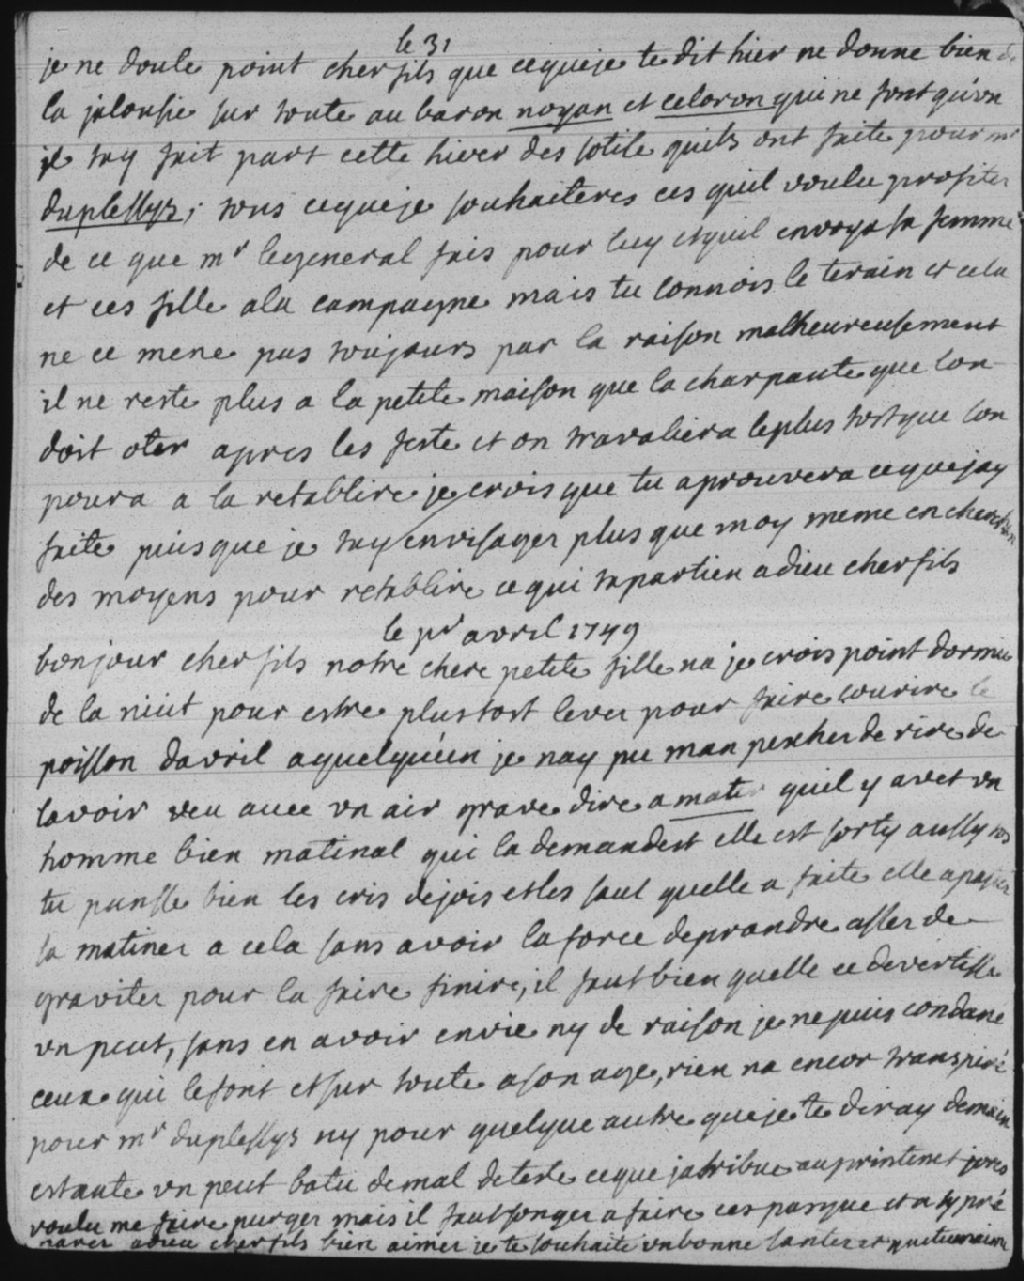 le 31
je ne doute point cher fils que ceque je te dit hier ne donne bien de
la jalousie sur toute au baron noyan et celoron qui ne font qu'un
je tay fait part cette hiver des sotise quils ont faite pour mr
duplessys; tous ceque je souhaiteres ces quil voulu profiter
de ce que mr legeneral fais pour luy et quil envoya sa femme
et ces fille ala campagne mais tu connois le terain et cela
ne ce mene pas toujours par la raison malheureusement
il ne reste plus a la petite maison que la charpante que lon
doit oter apres les feste et on travaliera leplus tost que lon
poura a la retablire je crois que tu aprouvera ceque jay
faite puis que je tay envisager plus que moy meme en cherchan
des moyens pour retablire ce qui tapartien adieu cher fils
le pr avril 1749
bonjour cher fils notre chere petite fille na je crois point dormie
de la nuit pour estre plustost lever pour faire courire le
poisson davril aquelquun je nay pu man pescher de rire de
lavoir veu avec un air grave dire a mater quil y avet un
homme bien matinal qui la demandest elle est sorty aussy tos
tu pansse bien les cris dejois et les saut quelle a faite elle a passer
sa matiner a cela sans avoir la force deprandre asser de
graviter pour la faire finire, il faut bien quelle ce devertisse
un peut, sans en avoir envie ny de raison je ne puis condané
ceux qui le font et sur toute a son age, rien na encor transpiré
pour mr duplessys ny pour quelque autre que je te diray demain
estante un peut batu demal detete ceque jatribue au printems jores
voulu me faire purger mais il faut songer a faire ces pasque et a sy pré
parer adieu cher fils bien aimer je te souhaite un bonne santer et